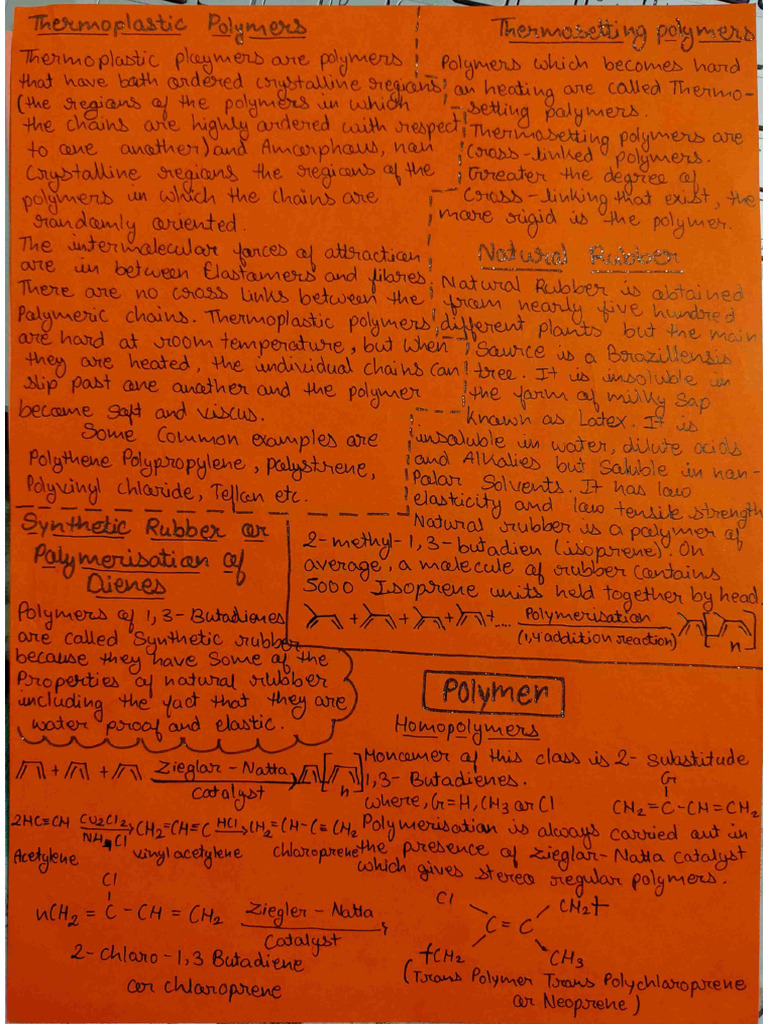 Thermoplastic Polymers
Thermoplastic playmers are polymers
that have both ordered crystalline regions
(the regions of the polymers in which
the chains are highly ordered with respect
to one another) and Amorphous, non
Crystalline regions the regions of the
polymers in which the chains are
randomly oriented.
The intermolecular forces of attraction
are in between Elastomers and fibres
There are no cross links between the
Polymeric chains. Thermoplastic polymers
are hard at room temperature, but when
they are heated, the individual chains can
slip past one another and the polymer
become Soft and viscus.
Some Common examples are
Polythene Polypropylene, polystrene,
Polyvinyl chloride, Teflon etc.
Thermosetting polymers
Polymers which becomes hard
on heating are called Thermo-
setting polymers.
Thermosetting polymers are
Cross-linked polymers.
Greater the degree of
Cross-linking that exist, the
more rigid is the polymer.
Natural Rubber
Natural Rubber is obtained
from nearly five hundred
different plants but the main
Source is a Brazillensis
tree. It is insoluble in
the form of milky sap
known as Latex. It is
insoluble in water, dilute acids
and Alkalies but Soluble in non-
Polar Solvents. It has low
elasticity and low tensile strength
Natural rubber is a polymer of
2-methyl-1,3-butadien (isoprene). On
average, a molecule of rubber contains
5000 Isoprene units held together by head.
+ + + +.... Polymerisation
(1,4 addition reaction)
n
Synthetic Rubber or
Polymerisation of
Dienes
Polymers of 1,3-Butadienes
are called Synthetic rubber
because they have Some of the
Properties of natural rubber
including the fact that they are
water proof and elastic.
+ + Zieglar-Natta
Catalyst
n
2HC≡CH Cu2Cl2 CH2=CH≡C HCl CH2=CH-C≡CH2
NH4Cl
Acetylene vinylacetylene chloroprene
Cl
nCH2 = C - CH = CH2 Ziegler-Natta
Catalyst
2-chloro-1,3 Butadiene
or chloroprene
Polymer
Homopolymers
Moncemer of this class is 2- Substitude
1,3- Butadienes.
G
where, G=H, CH3 or Cl CH2=C-CH=CH2
Polymerisation is always carried out in
the presence of Zieglar-Natta Catalyst
which gives stereo regular polymers.
Cl CH2
C = C
CH2 CH3
(Trans Polymer Trans Polychloroprene
or Neoprene)